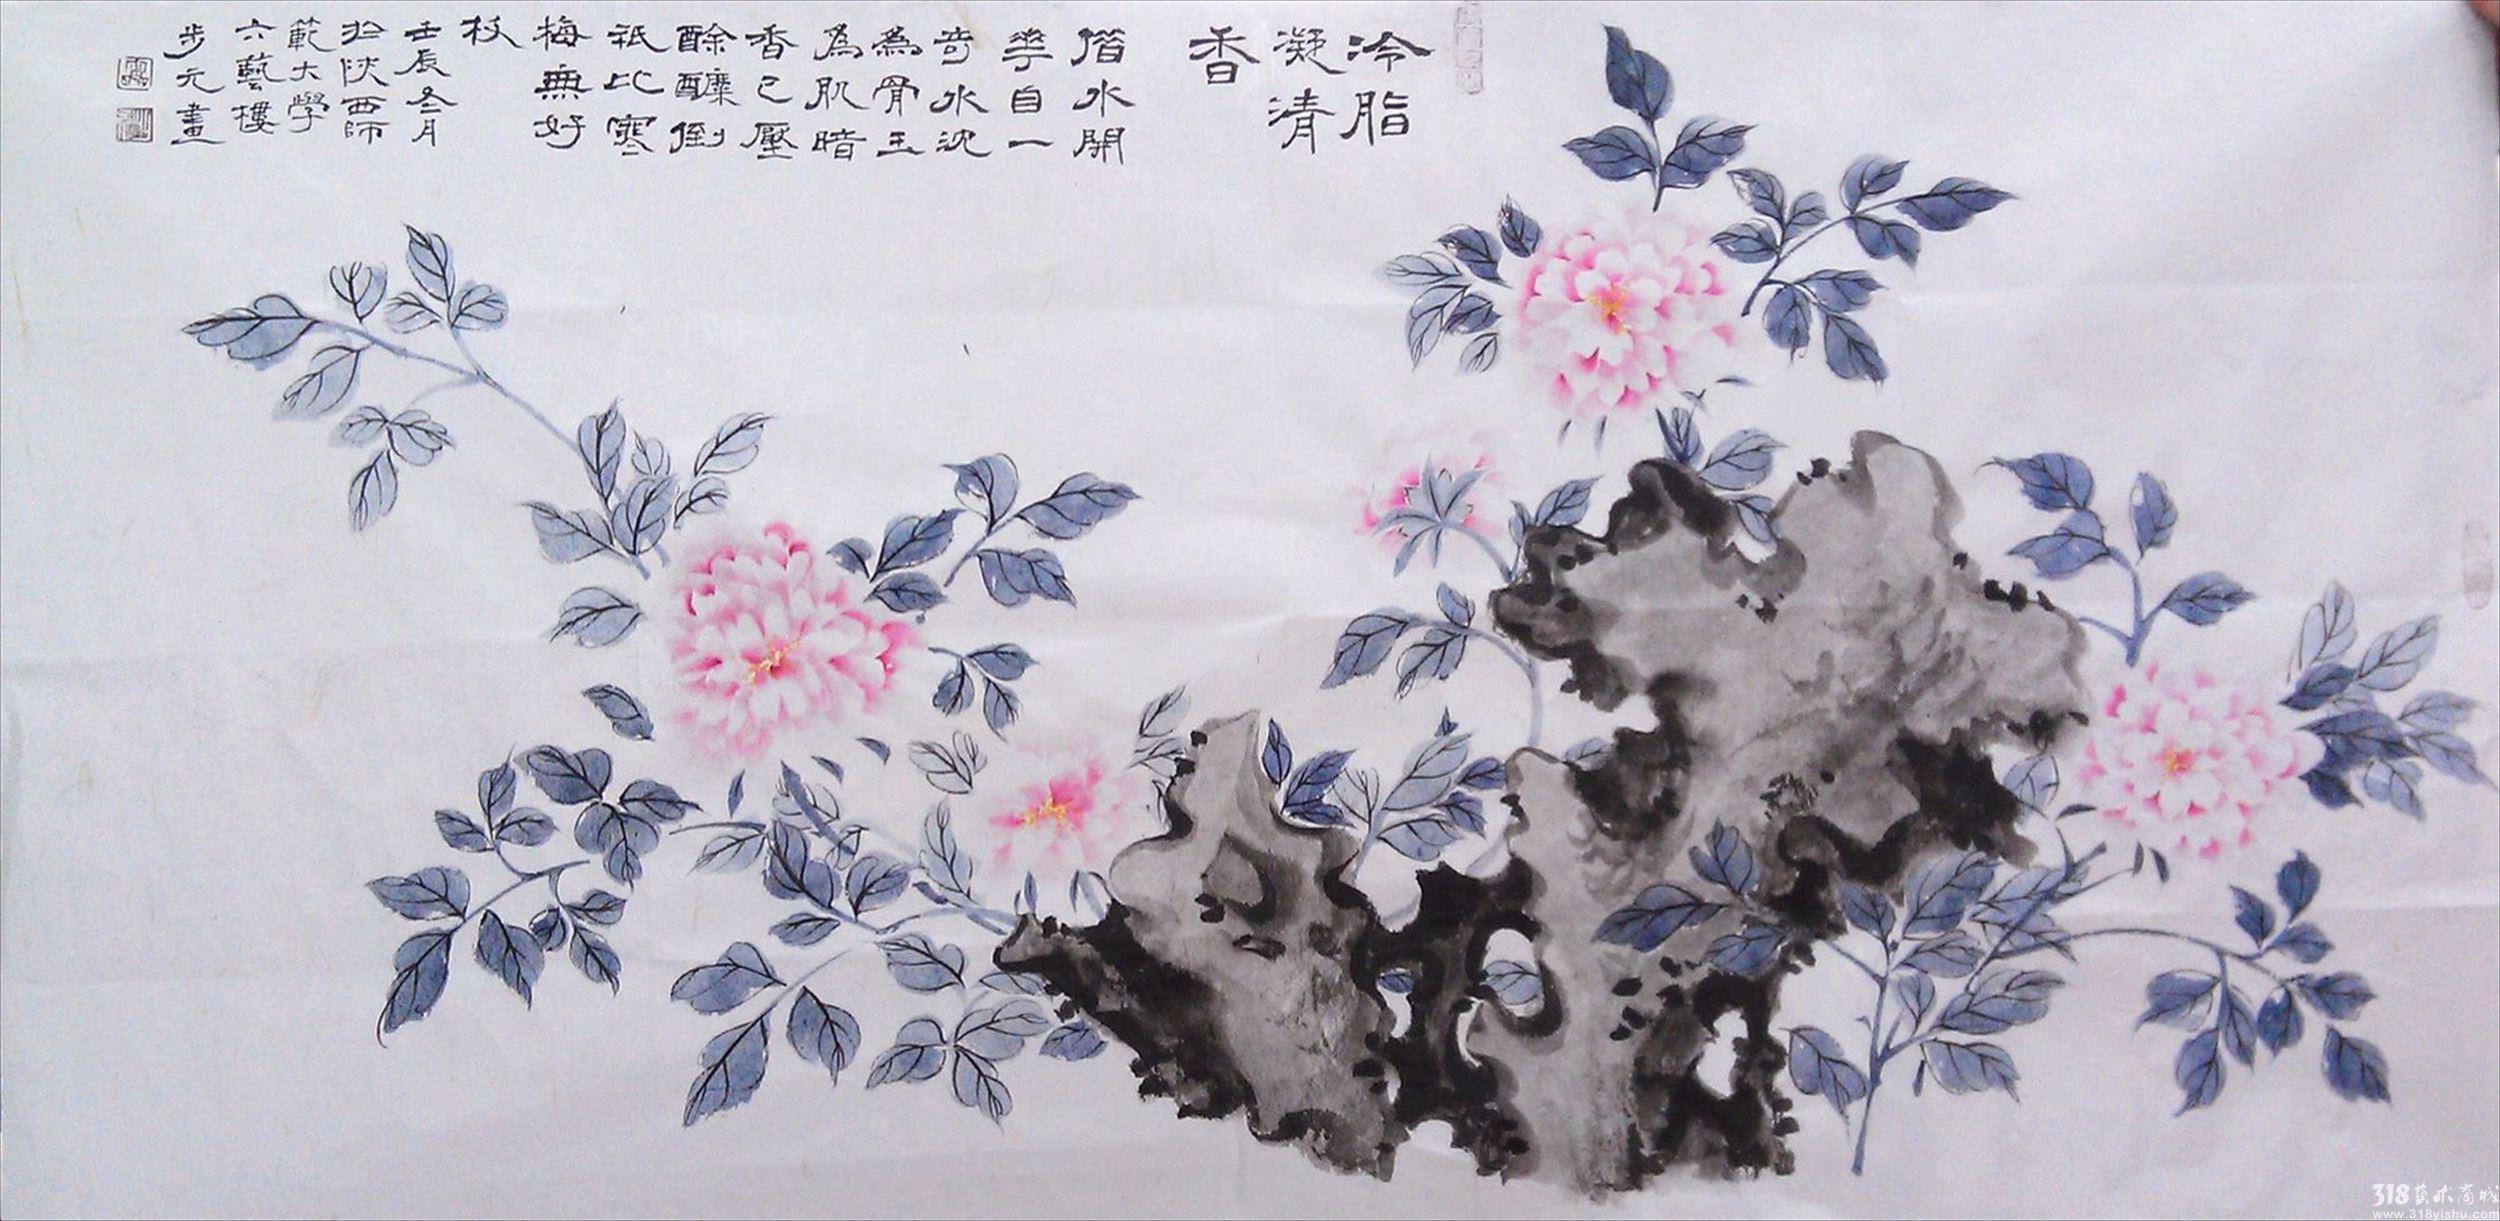 冷脂
凝清
香
借水開
華自一
奇水沈
爲骨玉
為肌暗
香已壓
酴醿倒
祇比寒
梅無好
枝
壬辰冬月
於陝西師
範大學
六藝樓
步元畫
318艺术商城
www.318yishu.com